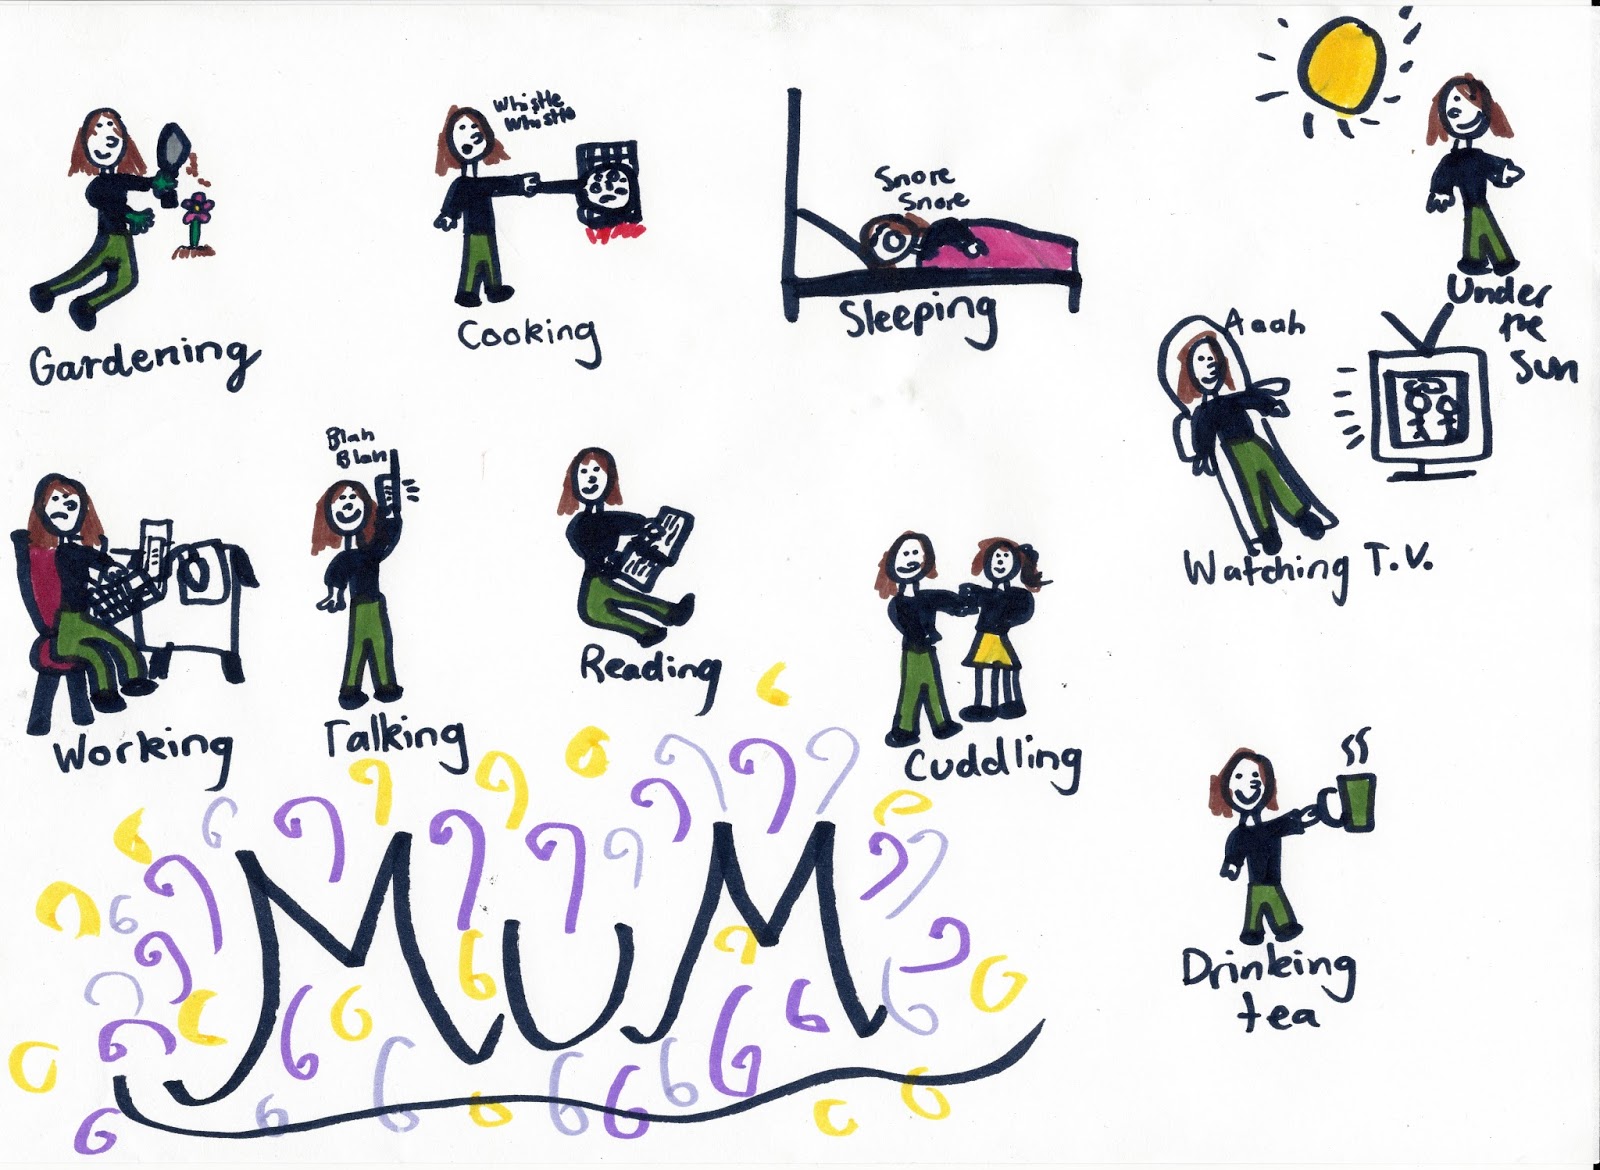 Whistle
Whistle
Snore
Snore
Under
the
Sun
Gardening
Cooking
Sleeping
Aaah
Blah
Blah
Watching T.V.
Working
Talking
Reading
Cuddling
MUM
Drinking
tea